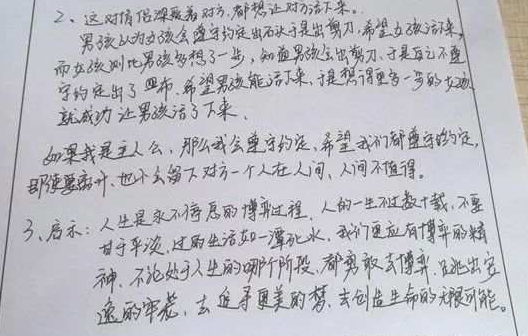 2、这对情侣深爱着对方,都想让对方活下来。
男孩认为女孩会遵守约定出石头于是出剪刀,希望女孩活下来,
而女孩则比男孩多想了一步,知道男孩会出剪刀,于是自己不遵
守约定出了布,希望男孩能活下来,于是想得更多一步的女孩
就成功让男孩活了下来.
如果我是主人公,那么我会遵守约定,希望我们都遵守约定,
即使要离开,也不会留下对方一个人在人间,人间不值得。
3、启示:人生是永不停息的博弈过程,人的一生不过数十载,不要
甘于平淡,过的生活如一潭死水,我们更应有博弈的精
神,不论处于人生的哪个阶段,都勇敢去博弈,跳出安
逸的牢笼,去追寻更美的梦,去创造生命的无限可能。